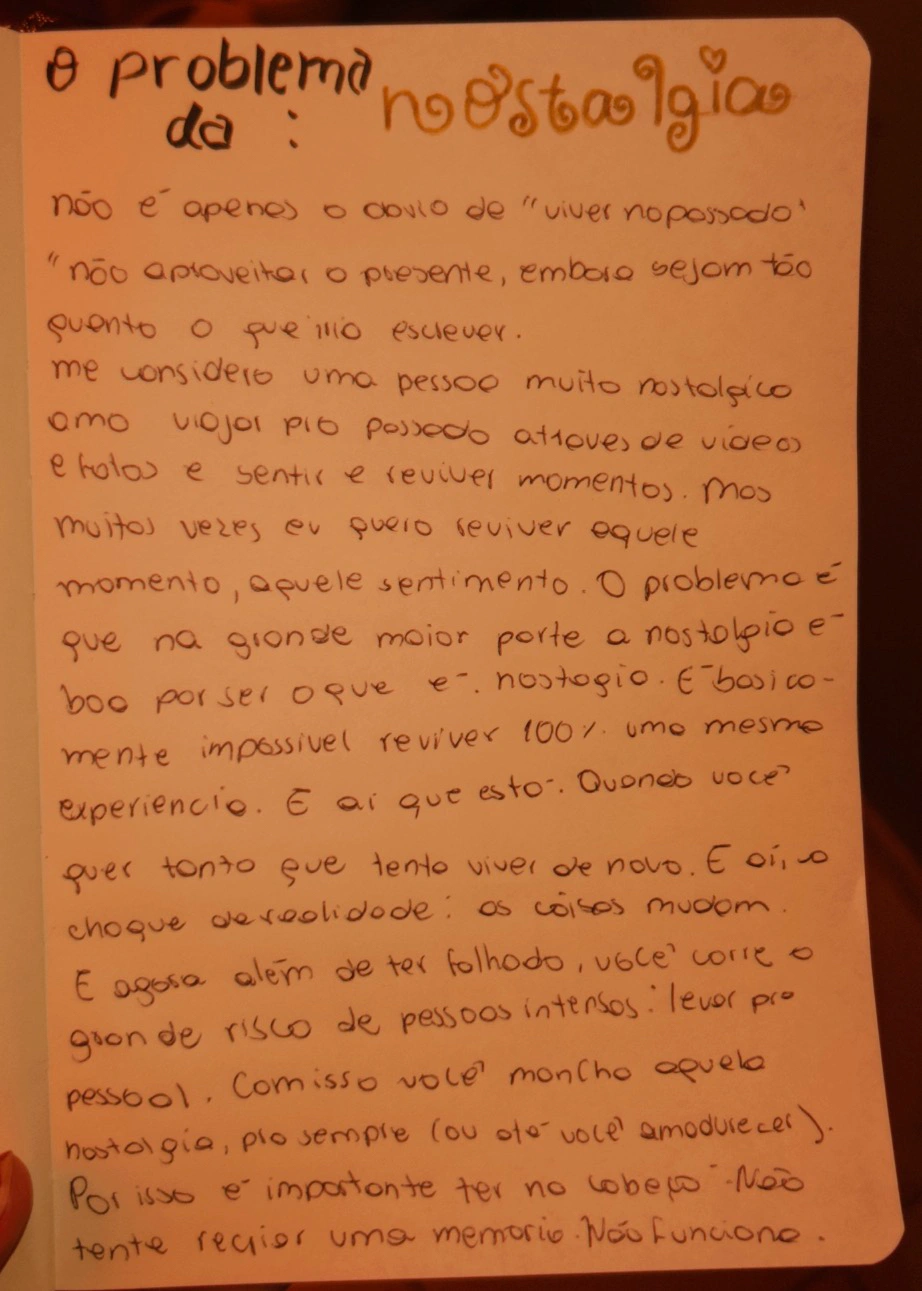 O problema da: nostalgia
não é apenas o obvio de "viver no passado'
"não aproveitar o presente, embora sejam tão
quanto o que irio escrever.
me considero uma pessoa muito nostalgica
amo viajar pro passado atraves de videos
e fotos e sentir e reviver momentos. Mas
muitas vezes eu quero reviver aquele
momento, aquele sentimento. O problema é
que na grande maior parte a nostalgia é
boa por ser o que é. nostagia. É basica-
mente impossivel reviver 100% uma mesma
experiencia. E ai que está. Quando você
quer tanto que tenta viver de novo. E aí, o
choque de realidade: as coisas mudam.
E agora além de ter falhado, você corre o
grande risco de pessoas intensas: levar pro
pessoal. Com isso você mancha aquela
nostalgia, pro sempre (ou até você amadurecer).
Por isso é importante ter na cabeça - Não
tente recriar uma memoria. Não funciona.